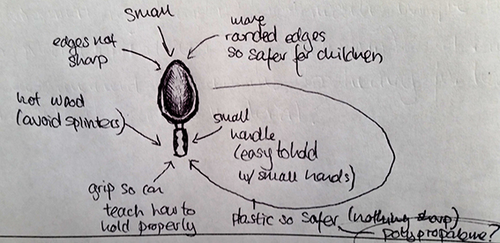 small
more
rounded edges
so safer for children
edges not
sharp
not wood
(avoid splinters)
small
handle
(easy to hold
w/ small hands)
grip so can
teach how to
hold properly
Plastic so safer (nothing sharp)
polypropalene?